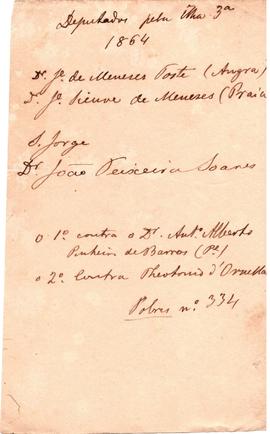 Deputados pela ilha 3ª
1864
Dr. Jº. de Meneses Forte (Angra)
Dr. Jº. Sieuve de Meneses (Praia
S. Jorge
Dr João Teixeira Soares
o 1º contra o Dr. Antº. Alberto
Pinheiro de Barros (Pe.)
o 2º contra Theotonio d'Ornellas
Pobres nº. 334